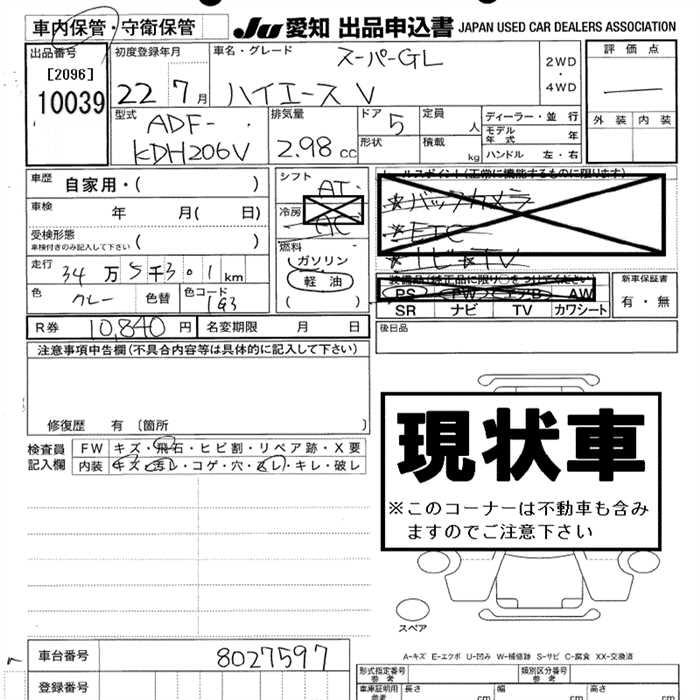 車内保管・守衛保管
JU 愛知 出品申込書 JAPAN USED CAR DEALERS ASSOCIATION
出品番号
[2096]
10039
初度登録年月
22 7月
車名・グレード
スーパーGL
ハイエースV
2WD
・
4WD
評価点
外装 内装
型式
ADF-
KDH206V
排気量
2.98 cc
ドア
5
形状
定員
人
積載
kg
ディーラー・並行
モデル年式 年
ハンドル 左・右
車歴
自家用・( )
車検
年 月( 日)
受検形態
車検付きのみ記入して下さい ( )
走行
34万5千301km
色
グレー
色替
色コード
1G3
シフト
AT
冷房
AC
燃料
ガソリン
軽油
( )
セールスポイント(正常に機能するものに限ります)
☆バックカメラ
☆ETC
装備品(純正品に限り○をつけてください)
PS PW エアB AW
SR ナビ TV カワシート
新車保証書
有・無
R券 10,840 円 名変期限 月 日
後日品
注意事項申告欄(不具合内容等は具体的に記入して下さい)
修復歴 有 〔箇所 〕
検査員
記入欄
FW キズ・飛石・ヒビ割・リペア跡・X要
内装 キズ・汚レ・コゲ・穴・スレ・キレ・破レ
現状車
※このコーナーは不動車も含み
ますのでご注意下さい
スペア
A-キズ E-エクボ U-凹み W-補修跡 S-サビ C-腐食 XX-交換済
車台番号
8027597
登録番号
形式指定番号
参考
類別区分番号
参考
車庫証明用
参考
長さ cm
幅 cm
高さ cm